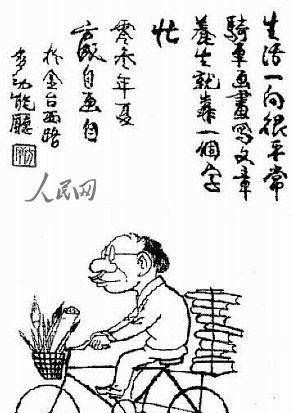 生活一向很平常
騎車画畫寫文章
養生就靠一個字
忙
零叁年夏
方成自画自
於金台西路
多功能廳
人民网